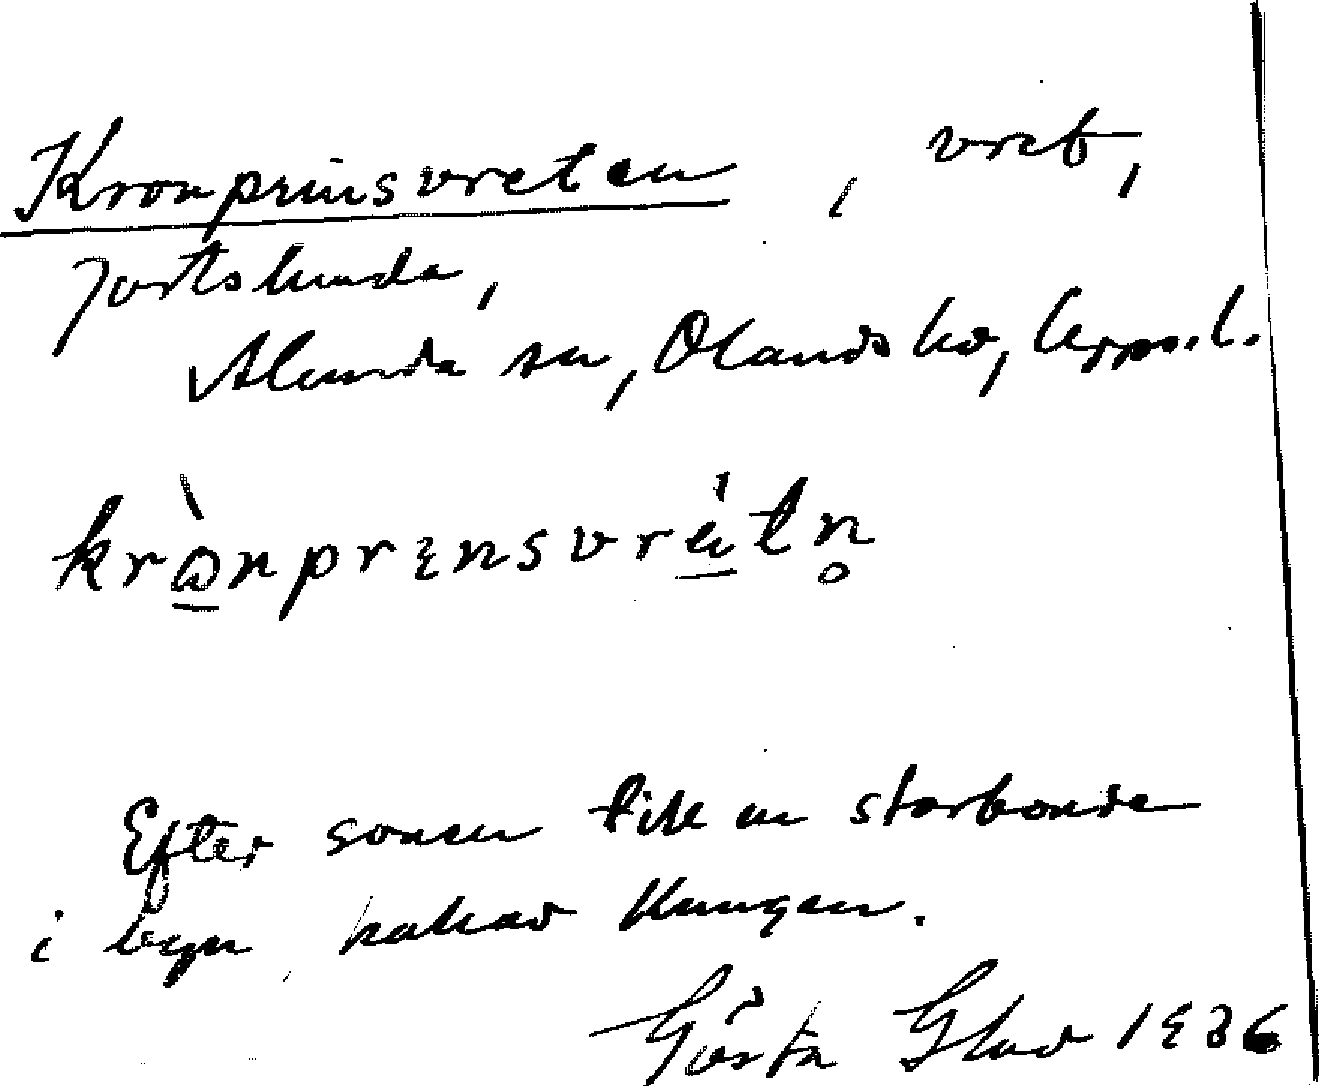 Kronprinsvreten, vret,
Tortslunda,
Alunda sn, Olands hd, Upps. l.
Efter sonen till en storbonde
i byn, kallad Kungen.
Gösta 1936